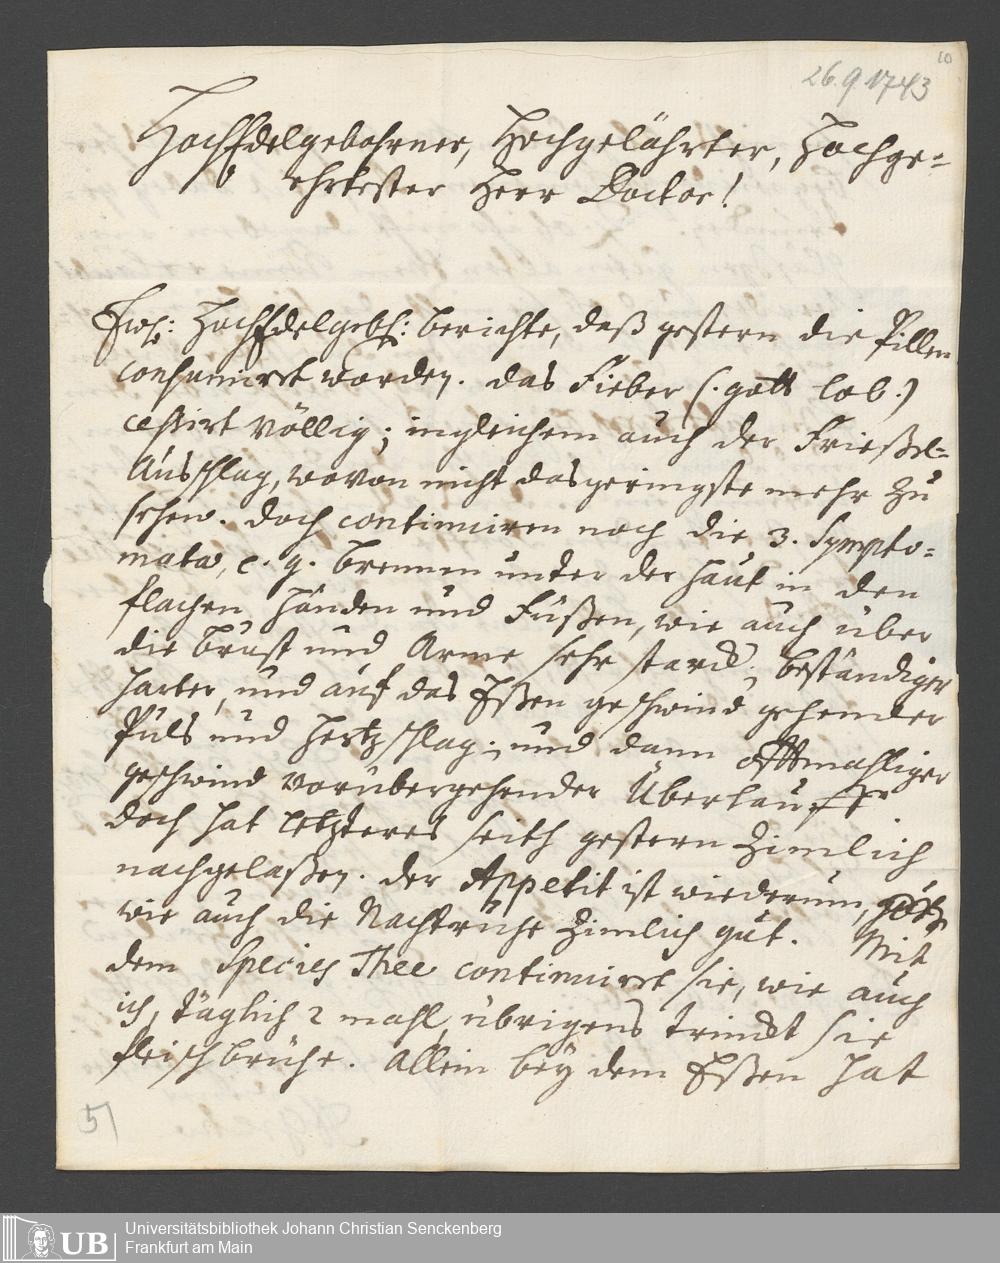 10
26.9.1743
HochEdelgebohrner, Hochgelährter, Hochge=
ehrtester Herr Doctor!
Ew: HochEdelgebh: berichte, daß gestern die Pillen
consumirt worden. das Fieber (. gott lob.)
cessirt völlig; ingleichem auch der Frießel=
Ausschlag, wovon nicht das geringste mehr zu
sehen. doch continuiren noch die 3. Sympto=
mata, e. g. brennen unter der haut in den
flachen Händen und Füßen, wie auch über
die Brust und Arme sehr starck; beständiger
harter, und auf das Eßen geschwind gehender
Puls und Hertzschlag; und dann offtmahliger
geschwind vorübergehender Überlauff
doch hat letzteres seith gestern zimlich
nachgelaßen. der Appetit ist wiederum,
wie auch die Nachtruhe zimlich gut. Mit
dem Species Thee continuirt sie, wie auch
ich, täglich 2 mahl, übrigens trinckt sie
fleischbrühe. Allein bey dem Eßen hat
51
UB
Universitätsbibliothek Johann Christian Senckenberg
Frankfurt am Main